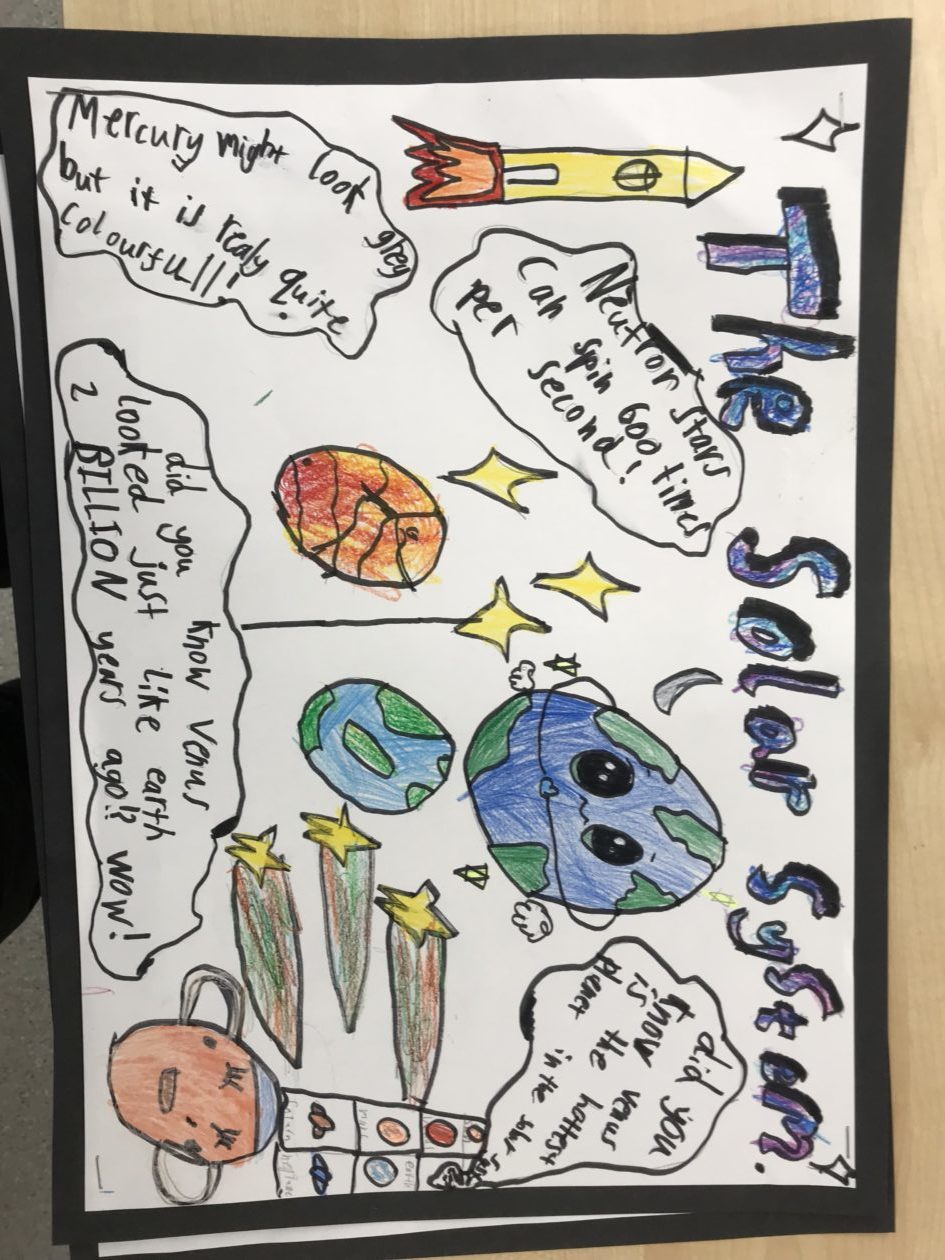 The Solar System.
Neutron stars
Can spin 600 times
per second!
Mercury might look grey
but it is realy quite
colourful!!!
did you
know venus
is the hottest
planet
in the solar
did you know venus
looked just like earth
2 BILLION years ago!? WOW!
earth
Saturn